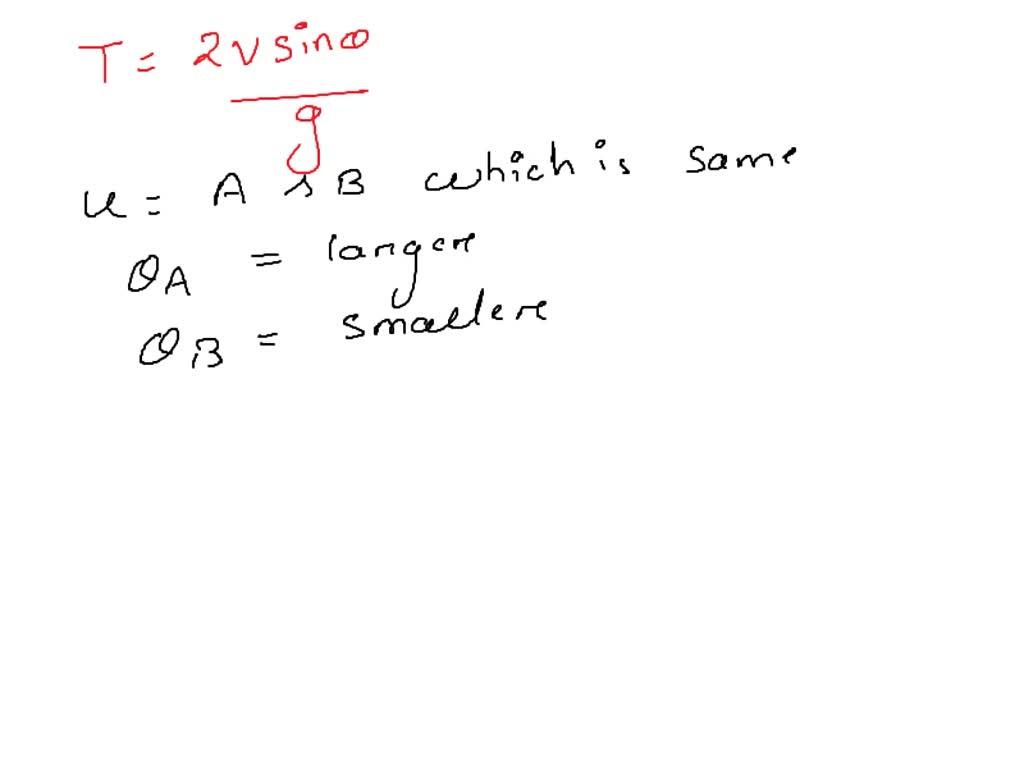 T = 2vsinθ
g
u = A & B which is same
θA = larger
θB = smaller